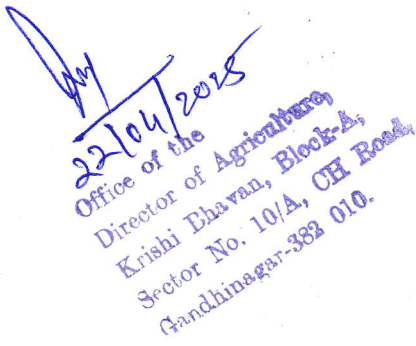 22/04/2025
Office of the
Director of Agriculture,
Krishi Bhavan, Block-A,
Sector No. 10/A, CH Road,
Gandhinagar-382 010.